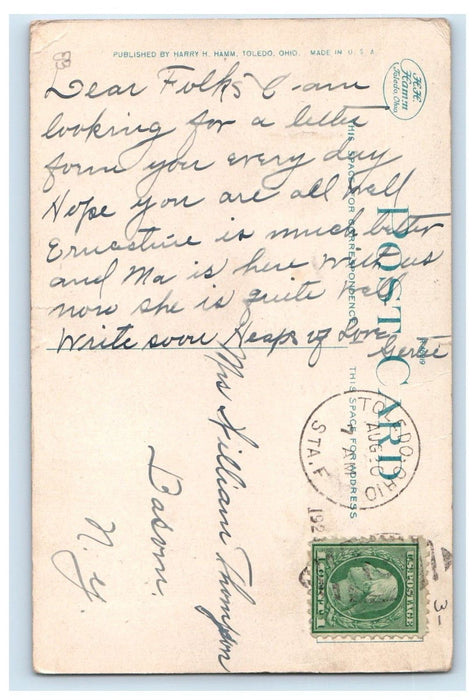 PUBLISHED BY HARRY H. HAMM, TOLEDO, OHIO. MADE IN U. S. A.
H.H.
Hamm
Toledo, Ohio.
Dear Folks I am
looking for a letter
form you every day
Hope you are all well
Ernestine is much better
and Ma is here with us
now she is quite well
Write soon Heaps of Love
Gertie
POST CARD
THIS SPACE FOR CORRESPONDENCE
THIS SPACE FOR ADDRESS
TOLEDO, OHIO
AUG 10
7 AM
STA. F
192
Mrs William Thompson
Basom
N.Y.
U.S. POSTAGE
1 CENT 1